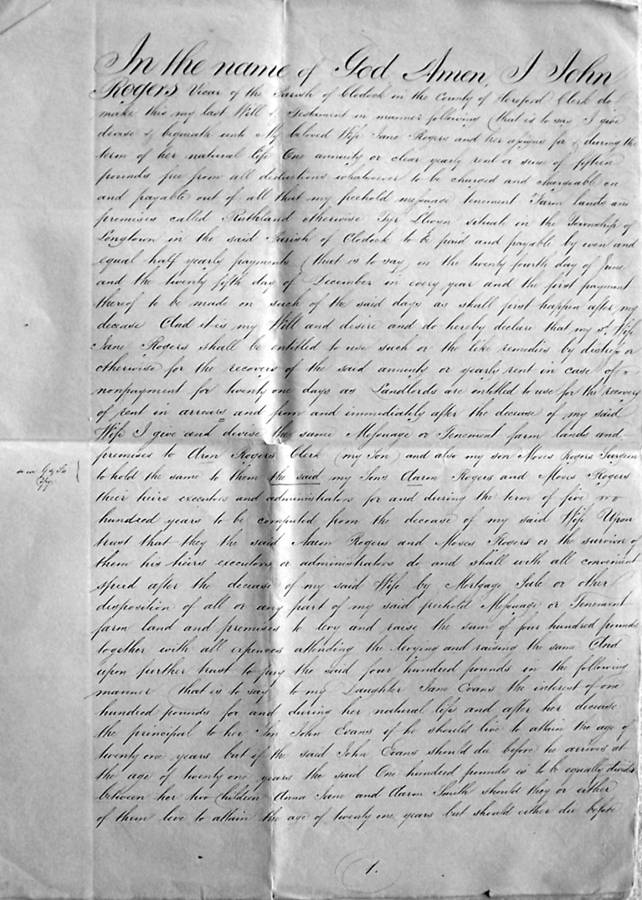 In the name of God Amen, I John
Rogers Vicar of the Parish of Clodock in the County of Hereford Clerk do
make this my last Will & Testament in manner following (that is to say I give
devise & bequeath unto My beloved Wife Jane Rogers and her assigns for & during the
term of her natural life One annuity or clear yearly rent or sum of fifteen
pounds free from all deductions whatsoever to be charged and chargeable on
and payable out of all that my freehold messuage tenement Farm lands and
premises called Ruthland otherwise Tyr Llwyn situate in the Township of
Longtown in the said Parish of Clodock to be paid and payable by even and
equal half yearly payments (that is to say) on the twenty fourth day of June
and the twenty fifth day of December in every year and the first payment
thereof to be made on such of the said days as shall first happen after my
decease And it is my Will and desire and do hereby declare that my sd. Wife
Jane Rogers shall be entitled to use such or the like remedies by distress or
otherwise for the recovery of the said annuity or yearly rent in case of
nonpayment for twenty one days as Landlords are entitled to use for the recovery
of rent in arrears and from and immediately after the decease of my said
Wife I give and devise the same Messuage or Tenement farm lands and
premises to Aron Rogers Clerk (my Son) and also my son Moses Rogers Surgeon
to hold the same to them the said my Sons Aaron Rogers and Moses Rogers
their heirs executors and administrators for and during the term of five
hundred years to be computed from the decease of my said Wife Upon
trust that they the said Aaron Rogers and Moses Rogers or the survivor of
them his heirs executors or administrators do and shall with all convenient
speed after the decease of my said Wife by Mortgage Sale or other
disposition of all or any part of my said freehold Messuage or Tenement
farm land and premises to levy and raise the sum of four hundred pounds
together with all expences attending the levying and raising the same And
upon further trust to pay the said four hundred pounds in the following
manner (that is to say) to my Daughter Jane Evans the interest of one
hundred pounds for and during her natural life and after her decease
the principal to her Son John Evans if he should live to attain the age of
twenty one years but if the said John Evans should die before he arrives at
the age of twenty one years the said One hundred pounds is to be equally divided
between her two Children Anna Jane and Aaron Smith should they or either
of them live to attain the age of twenty one years but should either die before
1.